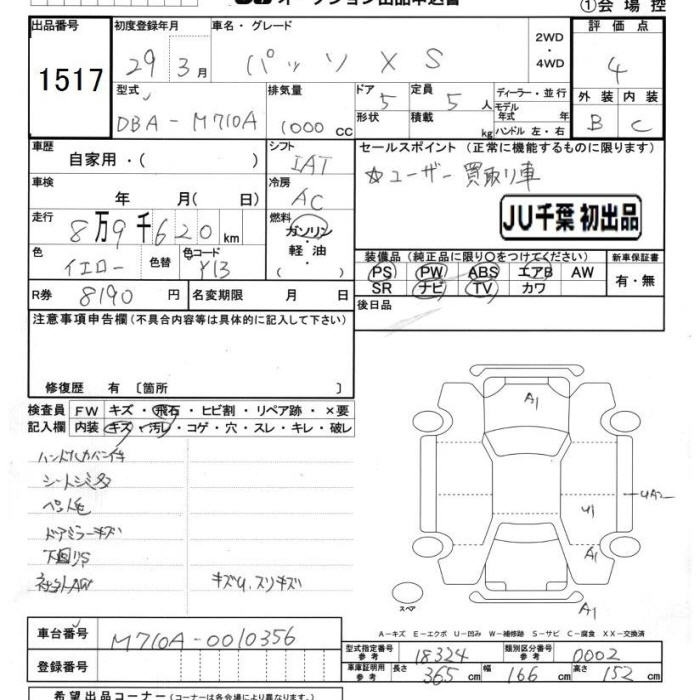 ①会場控
出品番号
1517
初度登録年月
29 3月
車名・グレード
パッソ XS
2WD
・
4WD
評価点
4
型式
DBA-M710A
排気量
1000 cc
ドア 5
形状
定員 5 人
積載 kg
ディーラー・並行
モデル年式 年
ハンドル 左・右
外装 内装
B C
車歴
自家用・( )
シフト
IAT
セールスポイント (正常に機能するものに限ります)
☆ユーザー買取り車
JU千葉 初出品
車検
年 月( 日)
冷房
AC
走行
8万9千620km
燃料
ガソリン
軽・油
色
イエロー
色替
色コード
Y13
装備品(純正品に限り○をつけてください)
PS PW ABS エアB AW
SR ナビ TV カワ
新車保証書
有・無
R券 8190 円
名変期限 月 日
後日品
注意事項申告欄(不具合内容等は具体的に記入して下さい)
修復歴 有 〔箇所 〕
検査員
記入欄
FW キズ・飛石・ヒビ割・リペア跡・×要
内装 キズ・汚レ・コゲ・穴・スレ・キレ・破レ
シートシミ
ドアミラーキズ
下回りS
社外AW キズU.スリキズ
A1
UA2
U1
A1
A1
スペア
A-キズ E-エクボ U-凹み W-補修跡 S-サビ C-腐食 XX-交換済
車台番号
M710A-0010356
登録番号
型式指定番号
参考
18324
類別区分番号
参考
0002
車庫証明用
参考
長さ 365cm 幅 166cm 高さ 152cm
希望出品コーナー(出品コーナーは各会場により異なります。)